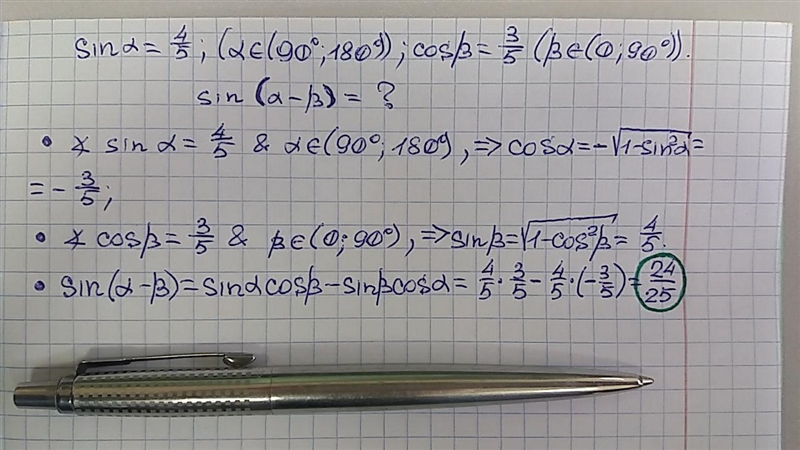 sinα = 4/5 ; (α∈(90°; 180°) ; cosβ = 3/5 (β∈(0; 90°)).
sin (α-β) = ?
• ∡ sin α = 4/5 & α∈(90°; 180°) , => cosα = -√(1-sin²α) =
= - 3/5 ;
• ∡ cosβ = 3/5 & β∈(0; 90°) , => sinβ = √(1-cos²β) = 4/5.
• sin(α-β) = sinαcosβ - sinβcosα = 4/5 · 3/5 - 4/5 · (-3/5) = 24/25